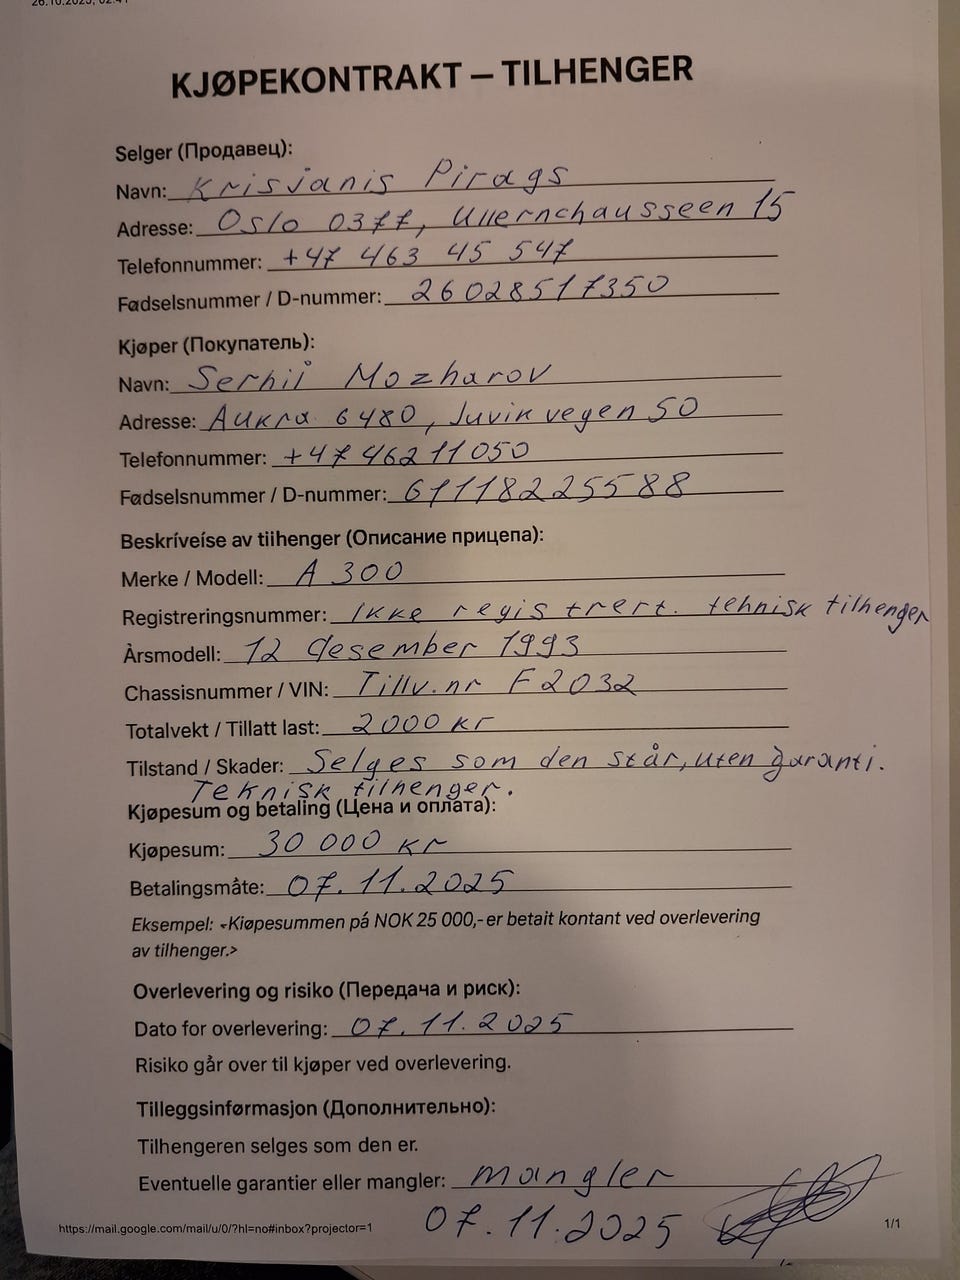 26.10.2025, 02:41
KJØPEKONTRAKT – TILHENGER
Selger (Продавец):
Navn: Krisjanis Pirags
Adresse: Oslo 0377, Ullernchausseen 15
Telefonnummer: +47 463 45 547
Fødselsnummer / D-nummer: 26028517350
Kjøper (Покупатель):
Navn: Serhii Mozharov
Adresse: Aukra 6480, Juvikvegen 50
Telefonnummer: +47 46211050
Fødselsnummer / D-nummer: 61118225588
Beskríveíse av tiihenger (Описание прицепа):
Merke / Modell: A 300
Registreringsnummer: Ikke registrert. tehnisk tilhenger
Àrsmodell: 12 desember 1993
Chassisnummer / VIN: Tillv.nr F2032
Totalvekt / Tillatt last: 2000 kr
Tilstand / Skader: Selges som den står, uten garanti.
Teknisk tilhenger.
Kjøpesum og betaling (Цена и оплата):
Kjøpesum: 30 000 kr
Betalingsmåte: 07.11.2025
Eksempel: «Kiøpesummen på NOK 25 000,- er betait kontant ved overlevering
av tilhenger.>
Overlevering og risiko (Передача и риск):
Dato for overlevering: 07.11.2025
Risiko går over til kjøper ved overlevering.
Tilleggsinførmasjon (Дополнительно):
Tilhengeren selges som den er.
Eventuelle garantier eller mangler: mangler
07.11.2025
https://mail.google.com/mail/u/0/?hl=no#inbox?projector=1 1/1